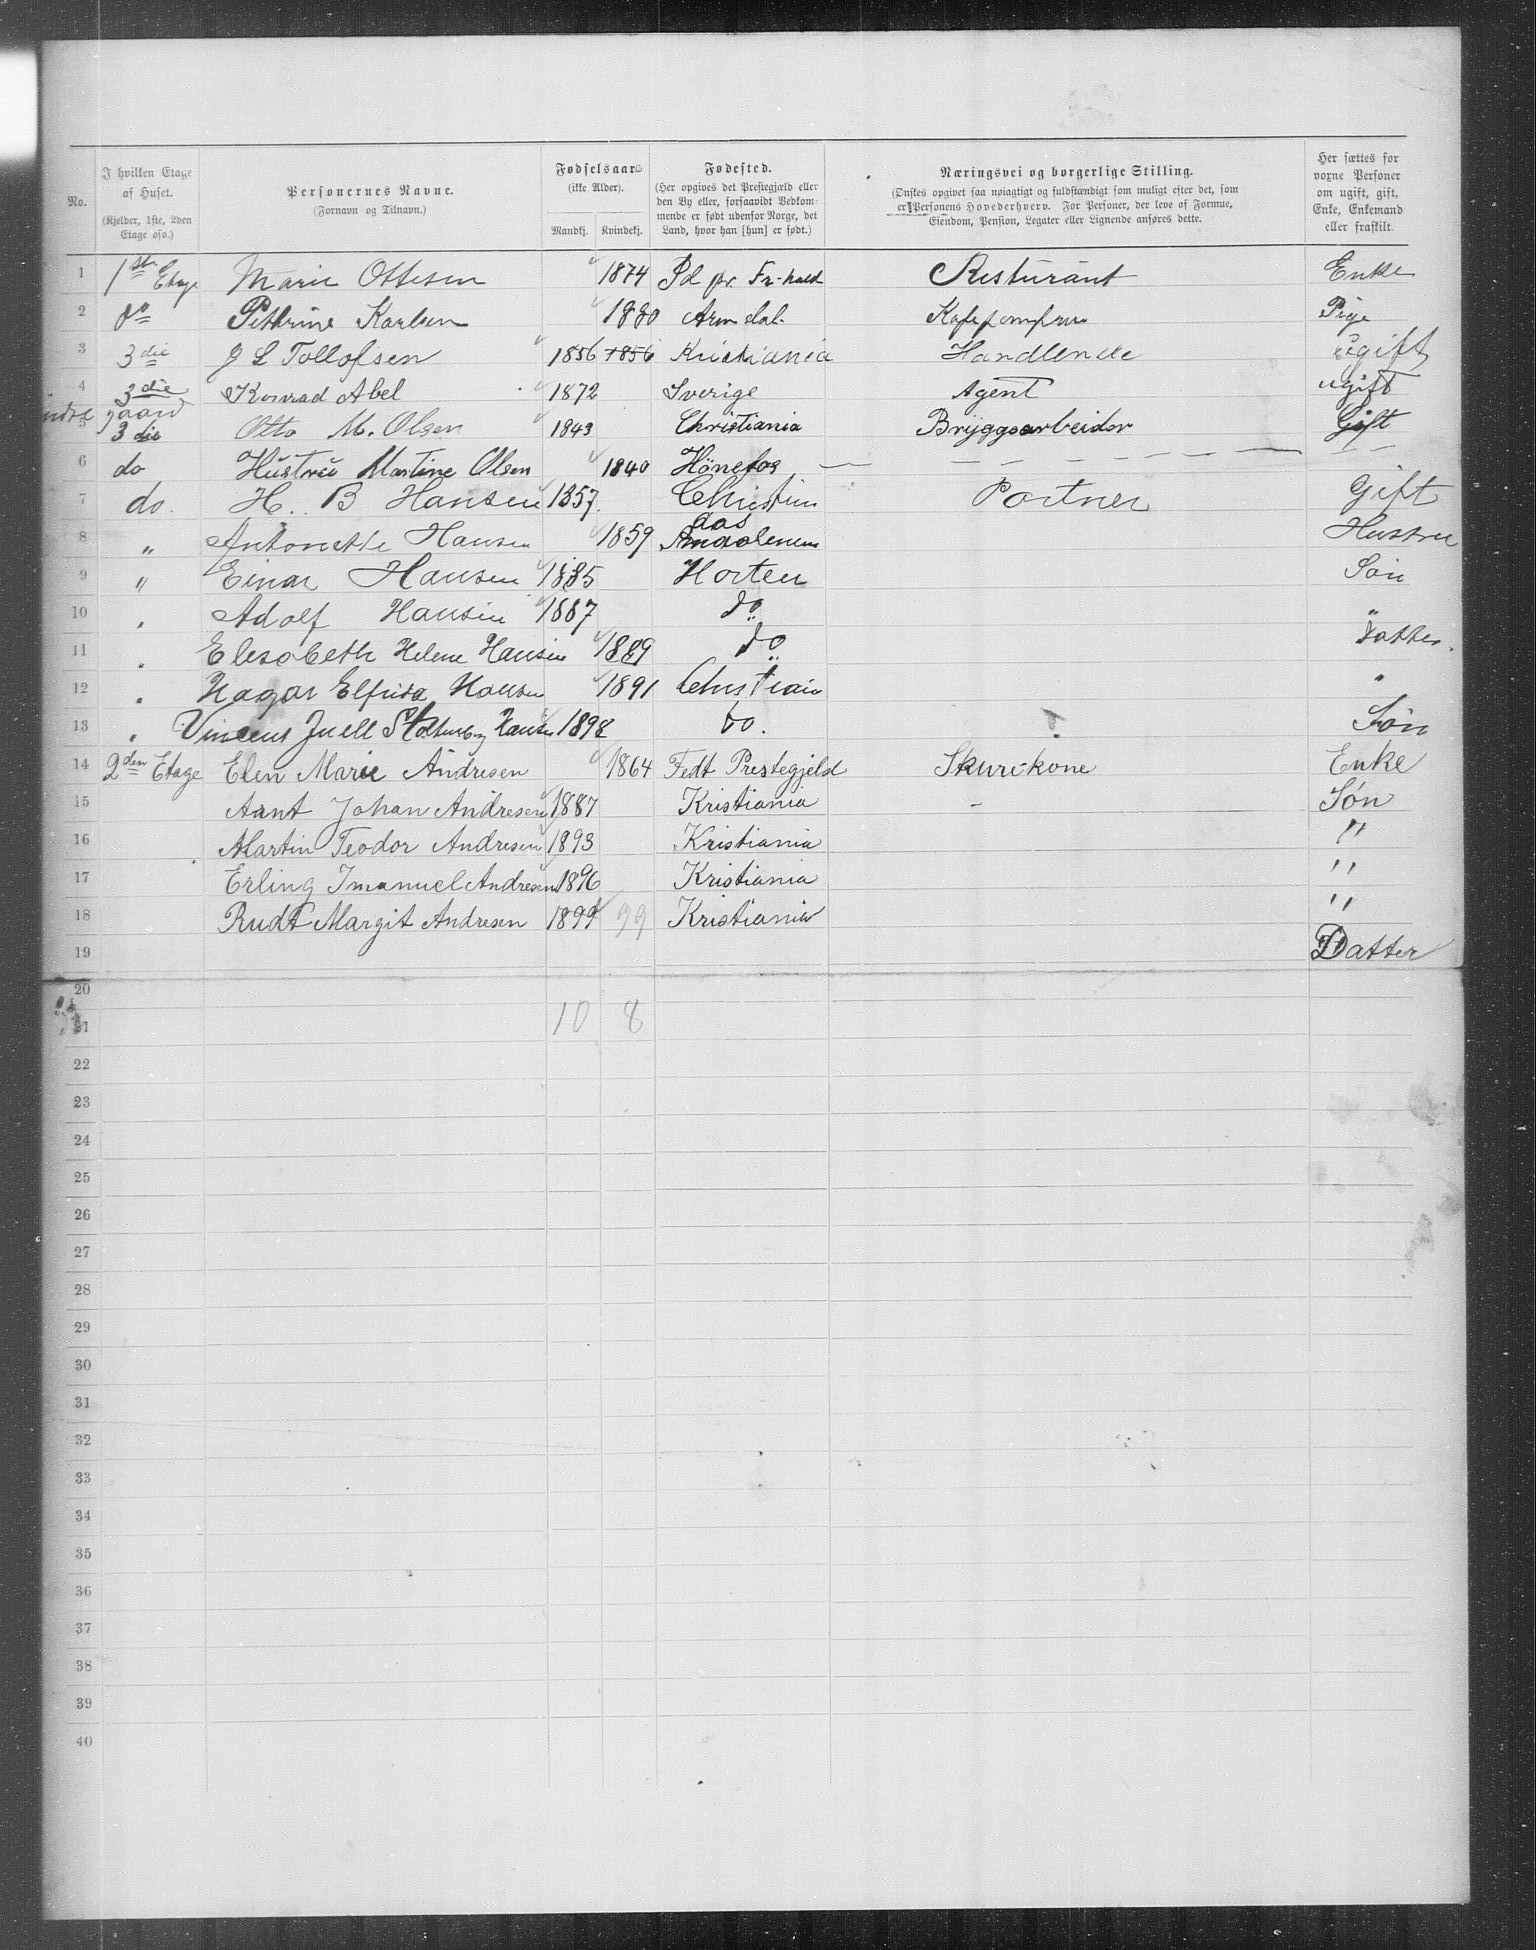 No.
I hvilken Etage af Huset. (Kjelder, 1ste, 2den Etage osv.)
Personernes Navne. (Fornavn og Tilnavn.)
Fødselsaar (ikke Alder). Mandkj. Kvindekj.
Fødested. (Her opgives det Prestegjæld eller den By eller, forsaavidt Vedkommende er født udenfor Norge, det Land, hvor han [hun] er født.)
Næringsvei og borgerlige Stilling. (Ønskes opgivet saa nøiagtigt og fuldstændigt som muligt efter det, som er Personens Hovederhverv. For Personer, der leve af Formue, Eiendom, Pension, Legater eller Lignende anføres dette.
Her sættes for voxne Personer om ugift, gift, Enke, Enkemand eller fraskilt.
1 1ste Etage Marie Ottesen 1874 Id pr. Fr-hald Resturant Enke
2 do Pethrine Karlsen 1880 Arendal Kafejomfru Pige
3 3die J L Tollofsen 1856 1856 Kristiania Handlende ugift
4 3die Konrad Abel 1872 Sverige Agent ugift
indre gaard
5 3die Otto M. Olsen 1843 Christiania Bryggearbeider Gift
6 do Hustrue Martine Olsen 1840 Hönefos — — — — — — — —
7 do. H. B Hansen 1857. Christian Portner Gift
8 " Antonette Hansen 1859 Hustru
9 " Einar Hansen 1885 Horten Søn
10 " Adolf Hansen 1887 do "
11 " Elesabeth Helene Hansen 1889 do Datter.
12 " Hagar Elfrida Hansen 1891 Christian "
13 " Vincens Juell Stoltenberg Hansen 1898 do. Søn
14 2den Etage Elen Marie Andresen 1864 Fedt Prestegjeld Skurekone Enke
15 Arnt Johan Andresen 1887 Kristiania - Són
16 Martin Teodor Andresen 1893 Kristiania "
17 Erling Imanuel Andresen 1896 Kristiania "
18 Rudt Margit Andresen 1899 99 Kristiania "
19 Datter
20
21 10 8
22
23
24
25
26
27
28
29
30
31
32
33
34
35
36
37
38
39
40